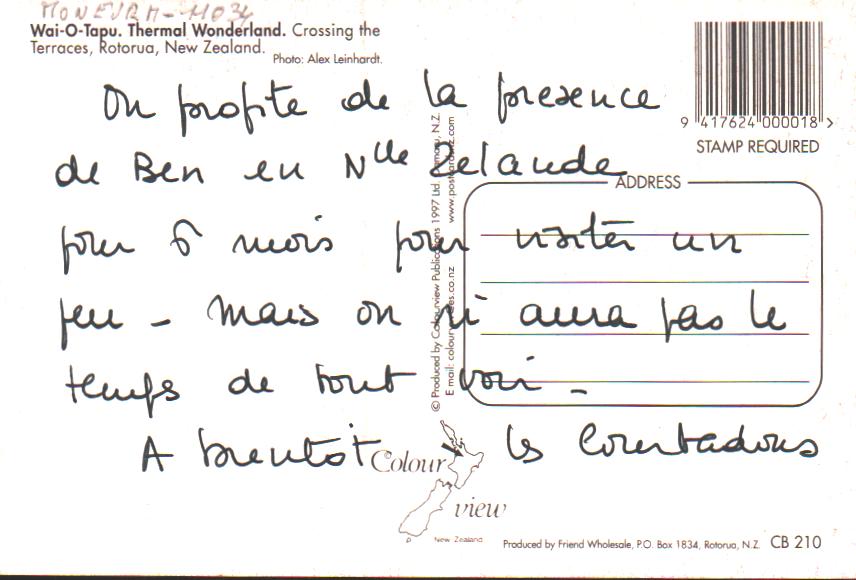 MONEVRA-M034
Wai-O-Tapu. Thermal Wonderland. Crossing the
Terraces, Rotorua, New Zealand.
Photo: Alex Leinhardt.
9 417624 000018 >
STAMP REQUIRED
ADDRESS
On profite de la presence
de Ben en Nlle Zelande
pour 6 mois pour visiter un
peu - mais on n'aura pas le
temps de tout voir -
A bientôt les
© Produced by Colourview Publications 1997 Ltd, N.Z.
Colour
view
New Zealand
Produced by Friend Wholesale, P.O. Box 1834, Rotorua, N.Z. CB 210